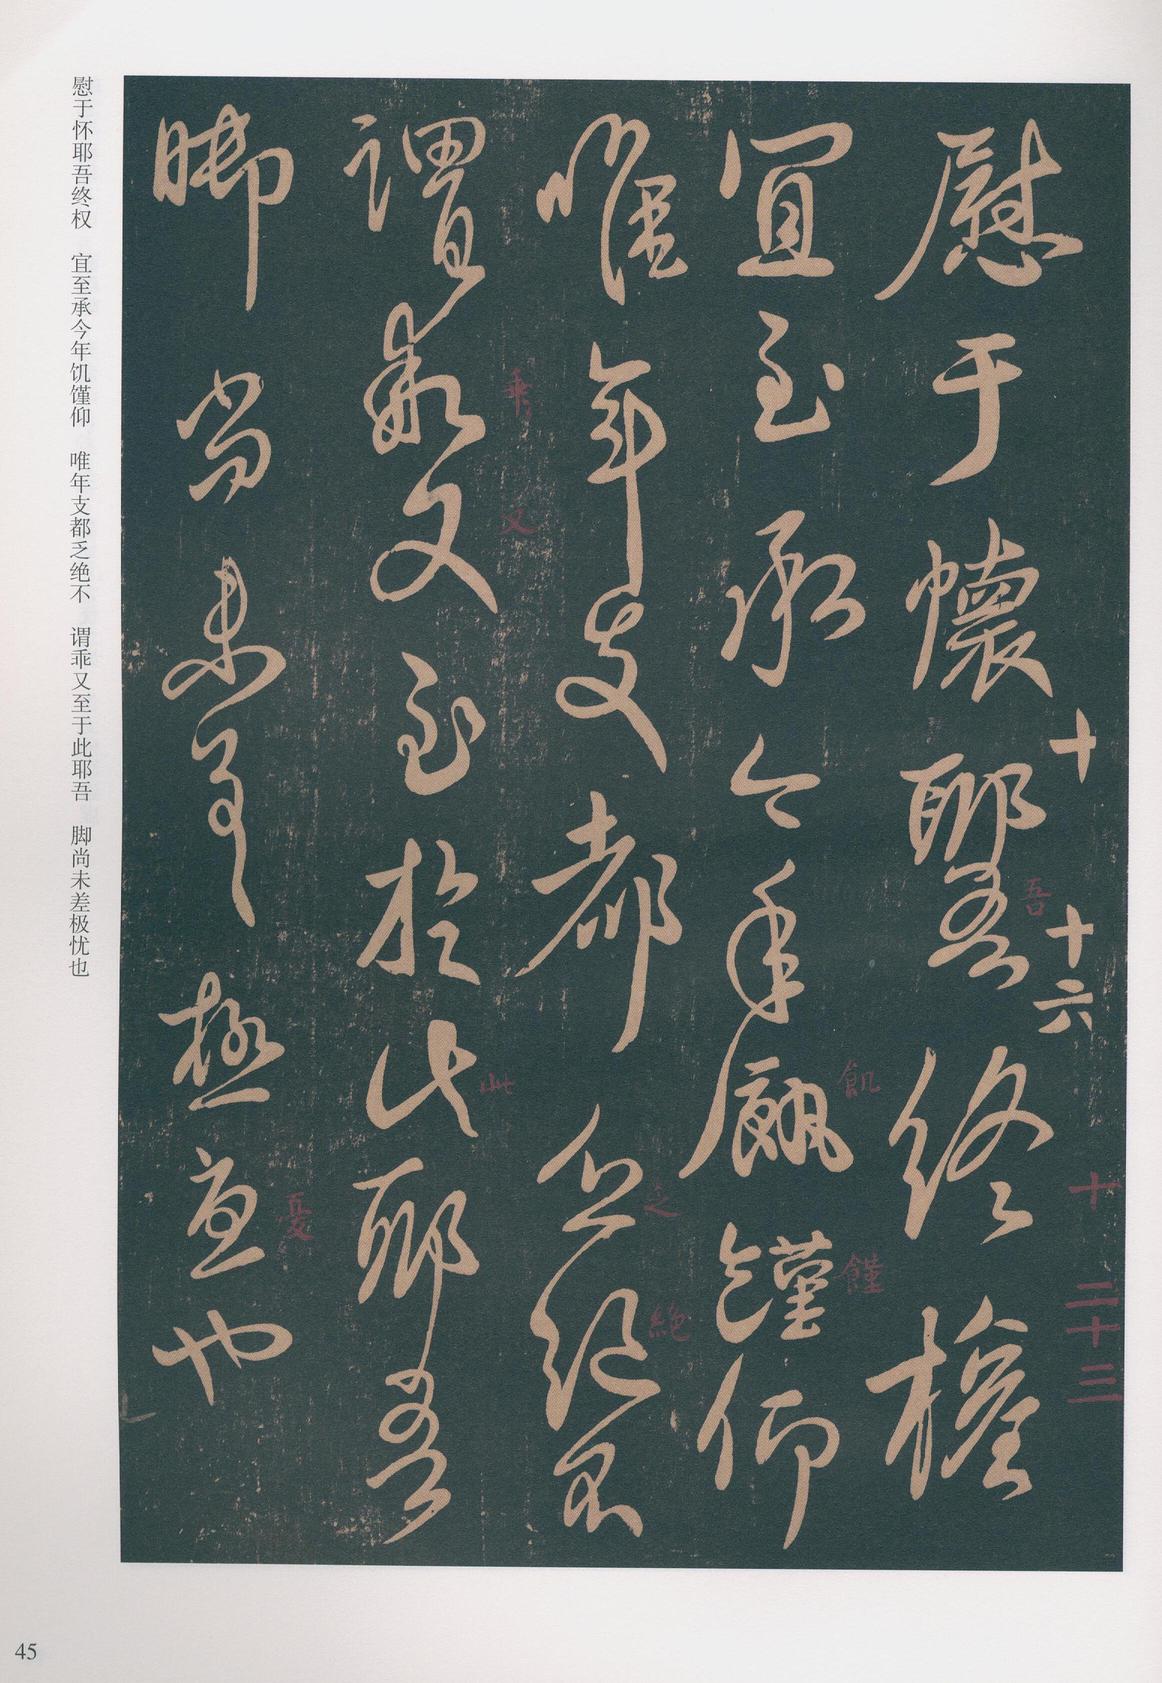 慰于懷耶吾終權
宜至承今年飢饉仰
唯年支都乏絕不
謂乖又至於此耶吾
腳尚未差極憂也
十
吾
十六
十
二十三
飢
饉
乏
絕
乖
又
此
憂
慰于怀耶吾终权 宜至承今年饥馑仰 唯年支都乏绝不 谓乖又至于此耶吾 脚尚未差极忧也
45